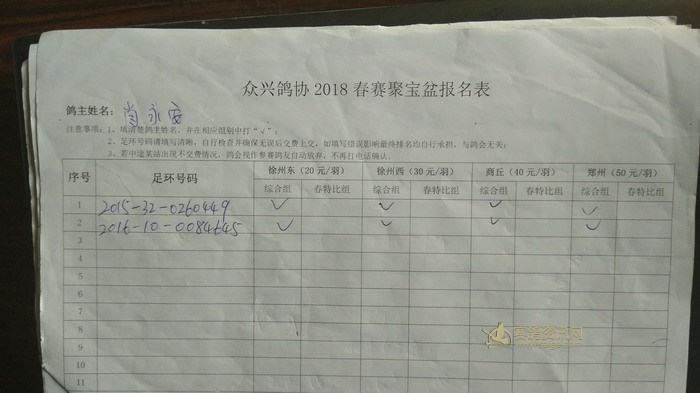 众兴鸽协 2018 春赛聚宝盆报名表
鸽主姓名：肖永安
注意事项：1、填清楚鸽主姓名，并在相应组别中打“√”；
2、足环号码请填写清晰，自行检查并确保无误后交费上交，如填写错误影响最终排名均自行承担，与鸽会无关；
3、若中途某站出现不交费情况，鸽会视作参赛鸽友自动放弃，不再打电话确认。
序号 足环号码 徐州东（20 元/羽） 徐州西（30 元/羽） 商丘（40 元/羽） 郑州（50 元/羽）
综合组 春特比组 综合组 春特比组 综合组 春特比组 综合组 春特比组
1 2015-32-0260449 √ √ √ √
2 2016-10-0084645 √ √ √ √
3
4
5
6
7
8
9
10
11